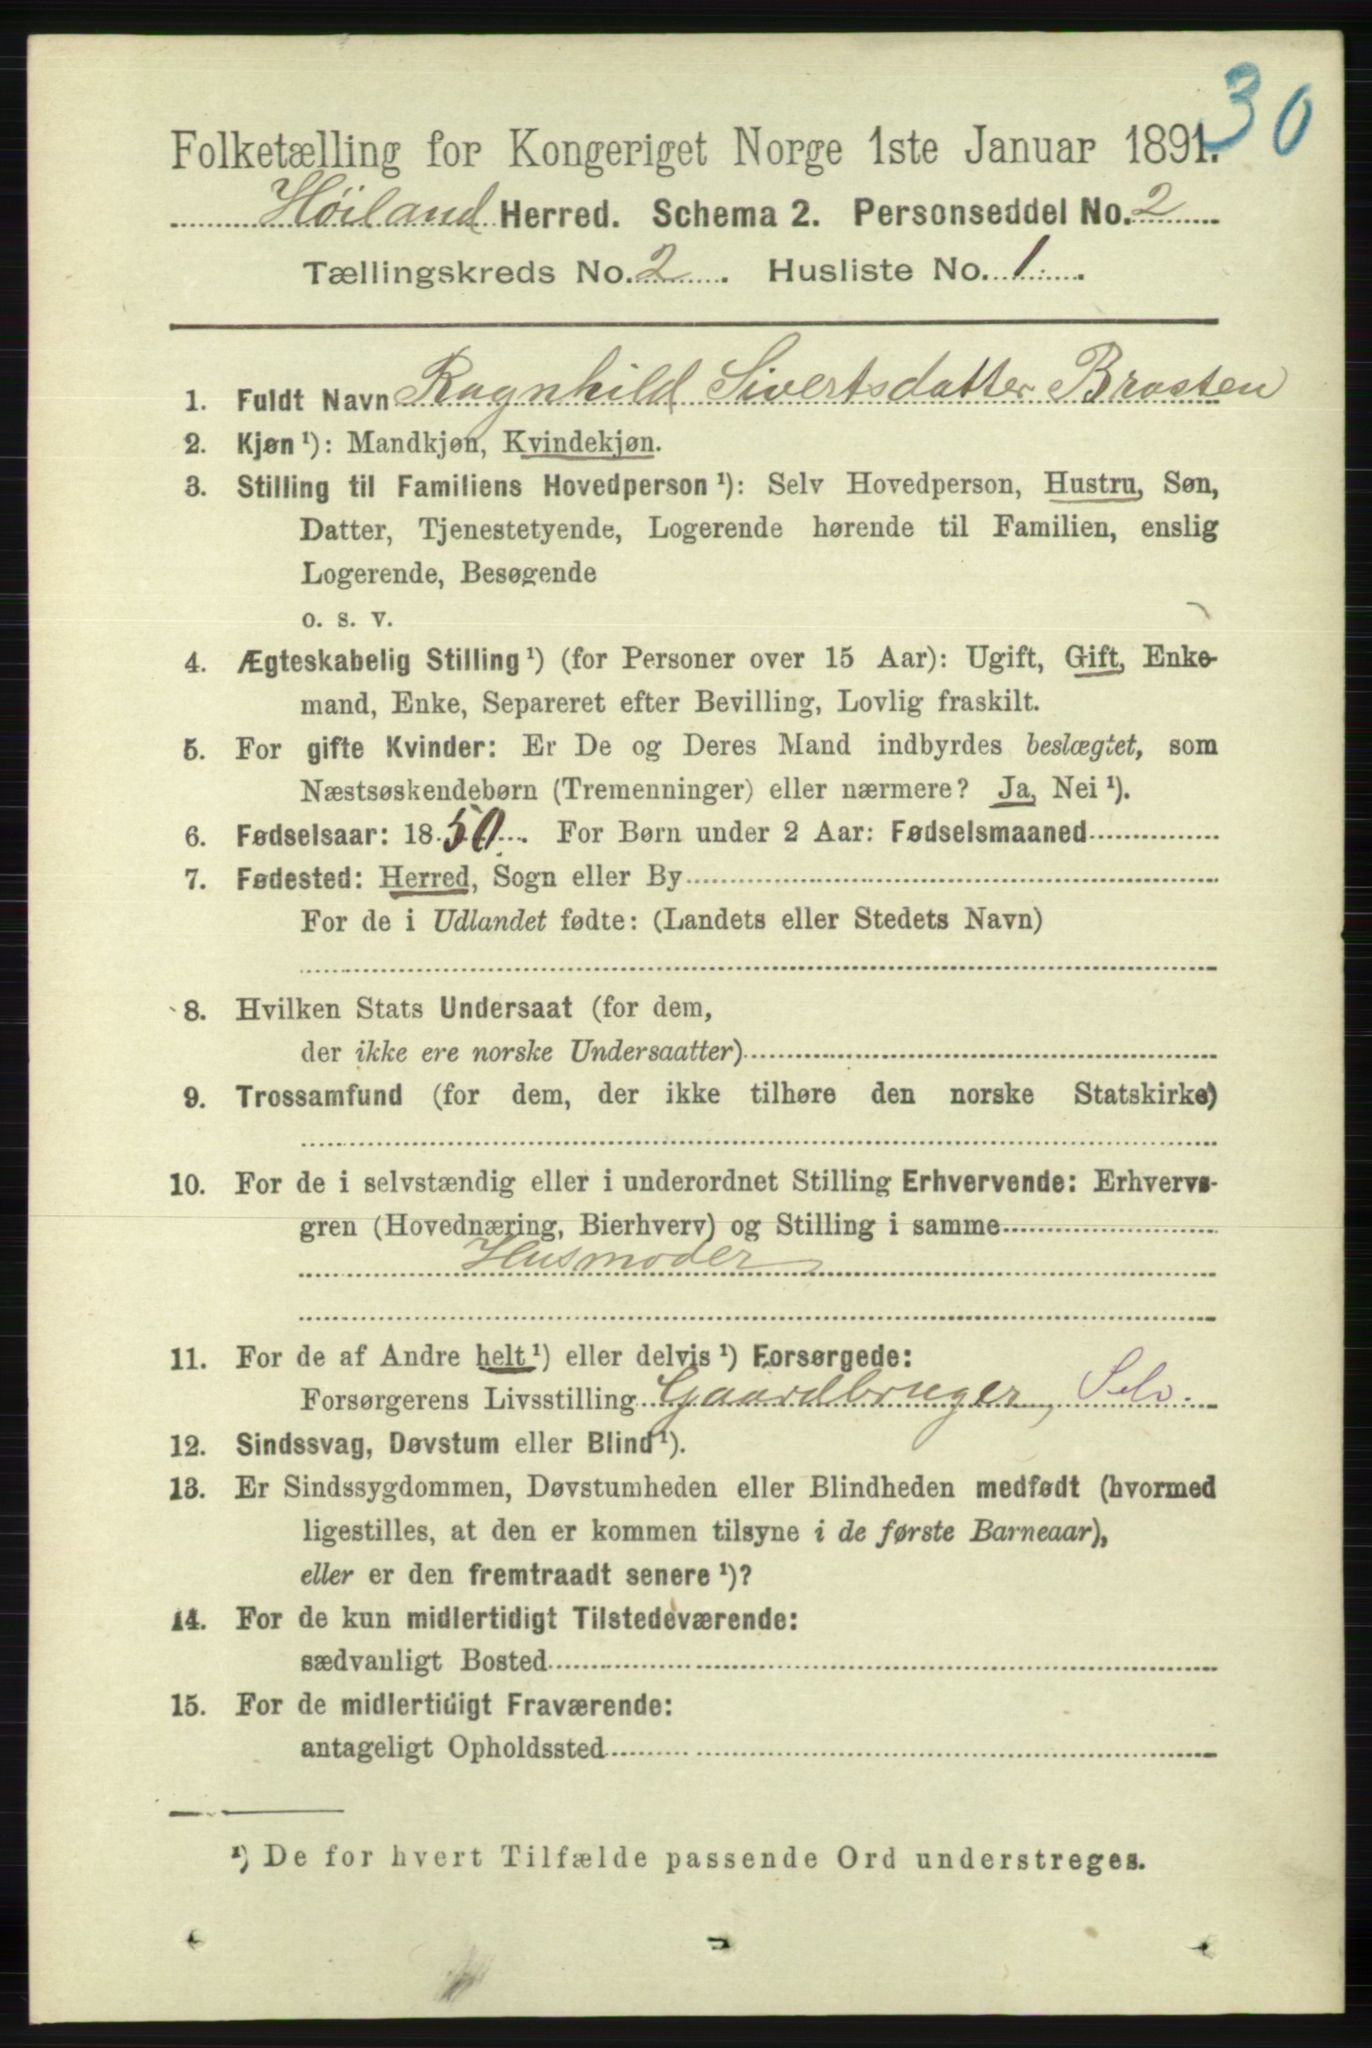 30
Folketælling for Kongeriget Norge 1ste Januar 1891.
Höiland Herred. Schema 2. Personseddel No. 2
Tællingskreds No. 2. Husliste No. 1.
1. Fuldt Navn Ragnhild Sivertsdatter Brasten
2. Kjøn ¹): Mandkjøn, Kvindekjøn.
3. Stilling til Familiens Hovedperson ¹): Selv Hovedperson, Hustru, Søn,
Datter, Tjenestetyende, Logerende hørende til Familien, enslig
Logerende, Besøgende
o. s. v.
4. Ægteskabelig Stilling ¹) (for Personer over 15 Aar): Ugift, Gift, Enke-
mand, Enke, Separeret efter Bevilling, Lovlig fraskilt.
5. For gifte Kvinder: Er De og Deres Mand indbyrdes beslægtet, som
Næstsøskendebørn (Tremenninger) eller nærmere? Ja, Nei ¹).
6. Fødselsaar: 1850. For Børn under 2 Aar: Fødselsmaaned
7. Fødested: Herred, Sogn eller By
For de i Udlandet fødte: (Landets eller Stedets Navn)
8. Hvilken Stats Undersaat (for dem,
der ikke ere norske Undersaatter)
9. Trossamfund (for dem, der ikke tilhøre den norske Statskirke)
10. For de i selvstændig eller i underordnet Stilling Erhvervende: Erhvervs-
gren (Hovednæring, Bierhverv) og Stilling i samme
Husmoder
11. For de af Andre helt ¹) eller delvis ¹) Forsørgede:
Forsørgerens Livsstilling Gaardbruger, Selv.
12. Sindssvag, Døvstum eller Blind ¹).
13. Er Sindssygdommen, Døvstumheden eller Blindheden medfødt (hvormed
ligestilles, at den er kommen tilsyne i de første Barneaar),
eller er den fremtraadt senere ¹)?
14. For de kun midlertidigt Tilstedeværende:
sædvanligt Bosted
15. For de midlertidigt Fraværende:
antageligt Opholdssted
¹) De for hvert Tilfælde passende Ord understreges.